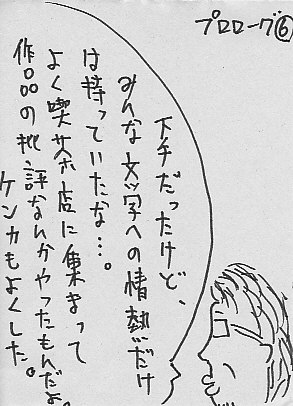 プロローグ⑥
下手だったけど、
みんな文学への情熱だけ
は持っていたな…。
よく喫茶店に集まって
作品の批評なんかやったもんだよ。
ケンカもよくした。